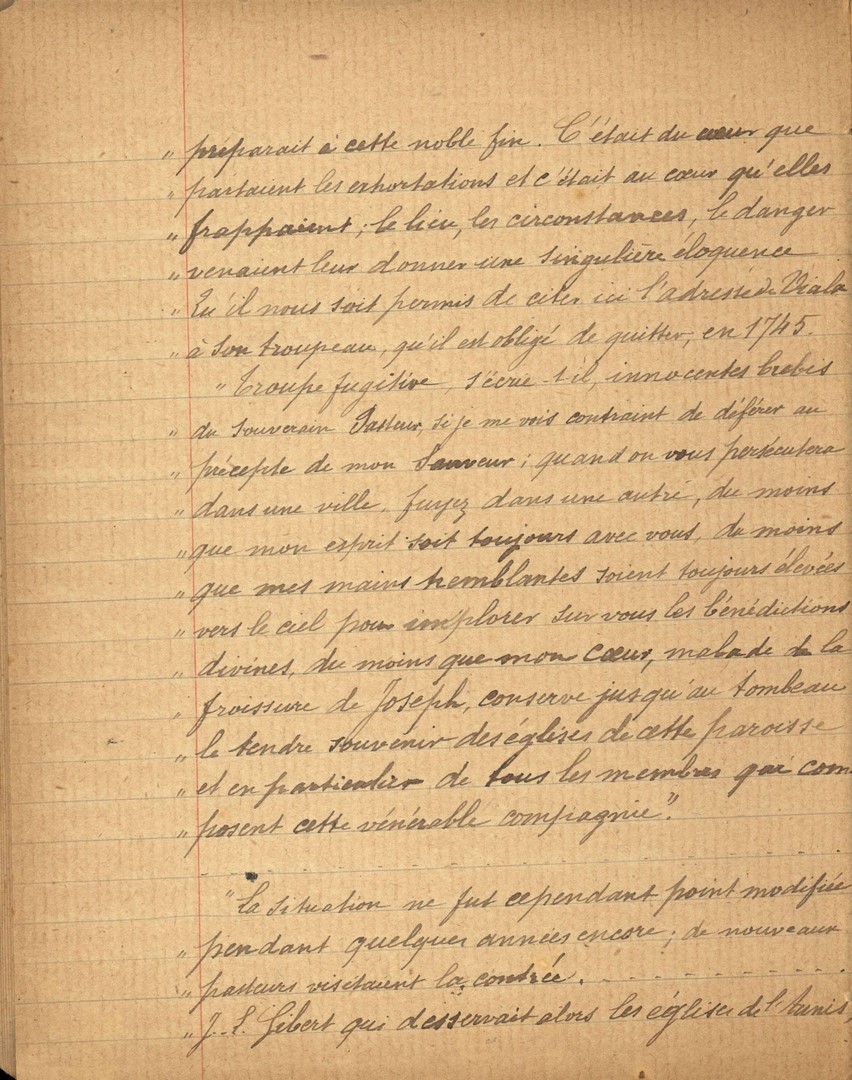 " préparait à cette noble fin. C'était du cœur que
" partaient les exhortations et c'était au cœur qu'elles
" frappaient; le lieu, les circonstances, le danger
" venaient leur donner une singulière éloquence
" Qu'il nous soit permis de citer ici l'adresse de Viala
" à son troupeau, qu'il est obligé de quitter, en 1745.
" Troupe fugitive, s'écrie-t-il, innocentes brebis
" du souverain Pasteur, si je me vois contraint de déférer au
" précepte de mon Sauveur; quand on vous persécutera
" dans une ville, fuyez dans une autre, du moins
" que mon esprit soit toujours avec vous, du moins
" que mes mains tremblantes soient toujours élevées
" vers le ciel pour implorer sur vous les bénédictions
" divines, du moins que mon cœur, malade de la
" froissure de Joseph, conserve jusqu'au tombeau
" le tendre souvenir des églises de cette paroisse
" et en particulier de tous les membres qui com
" posent cette vénérable compagnie".
" La situation ne fut cependant point modifiée
" pendant quelques années encore; de nouveaux
" pasteurs visitaient la contrée. - - - - - - - - - -
" J. L. Gibert qui desservait alors les églises de l'Aunis,